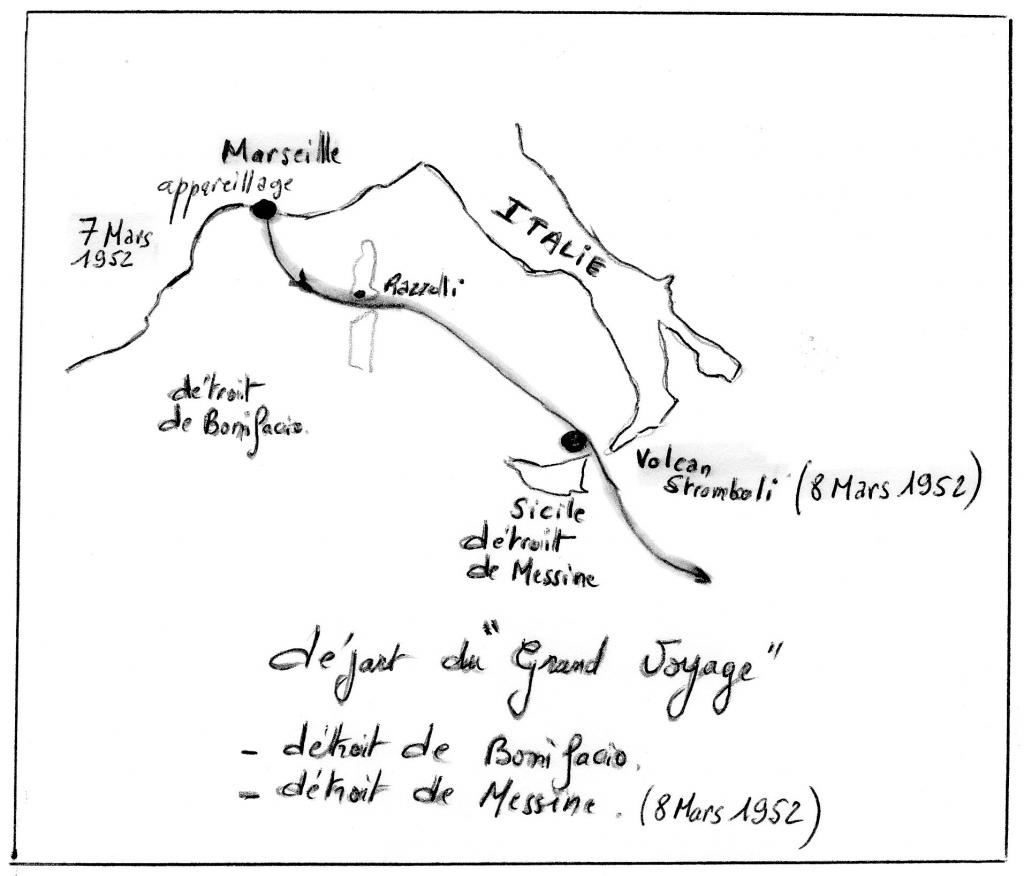 Marseille
appareillage
7 Mars
1952
ITALIE
Razzoli
détroit
de Bonifacio.
Volcan
Stromboli (8 Mars 1952)
Sicile
détroit
de Messine
départ du "Grand Voyage"
- détroit de Bonifacio.
- détroit de Messine. (8 Mars 1952)